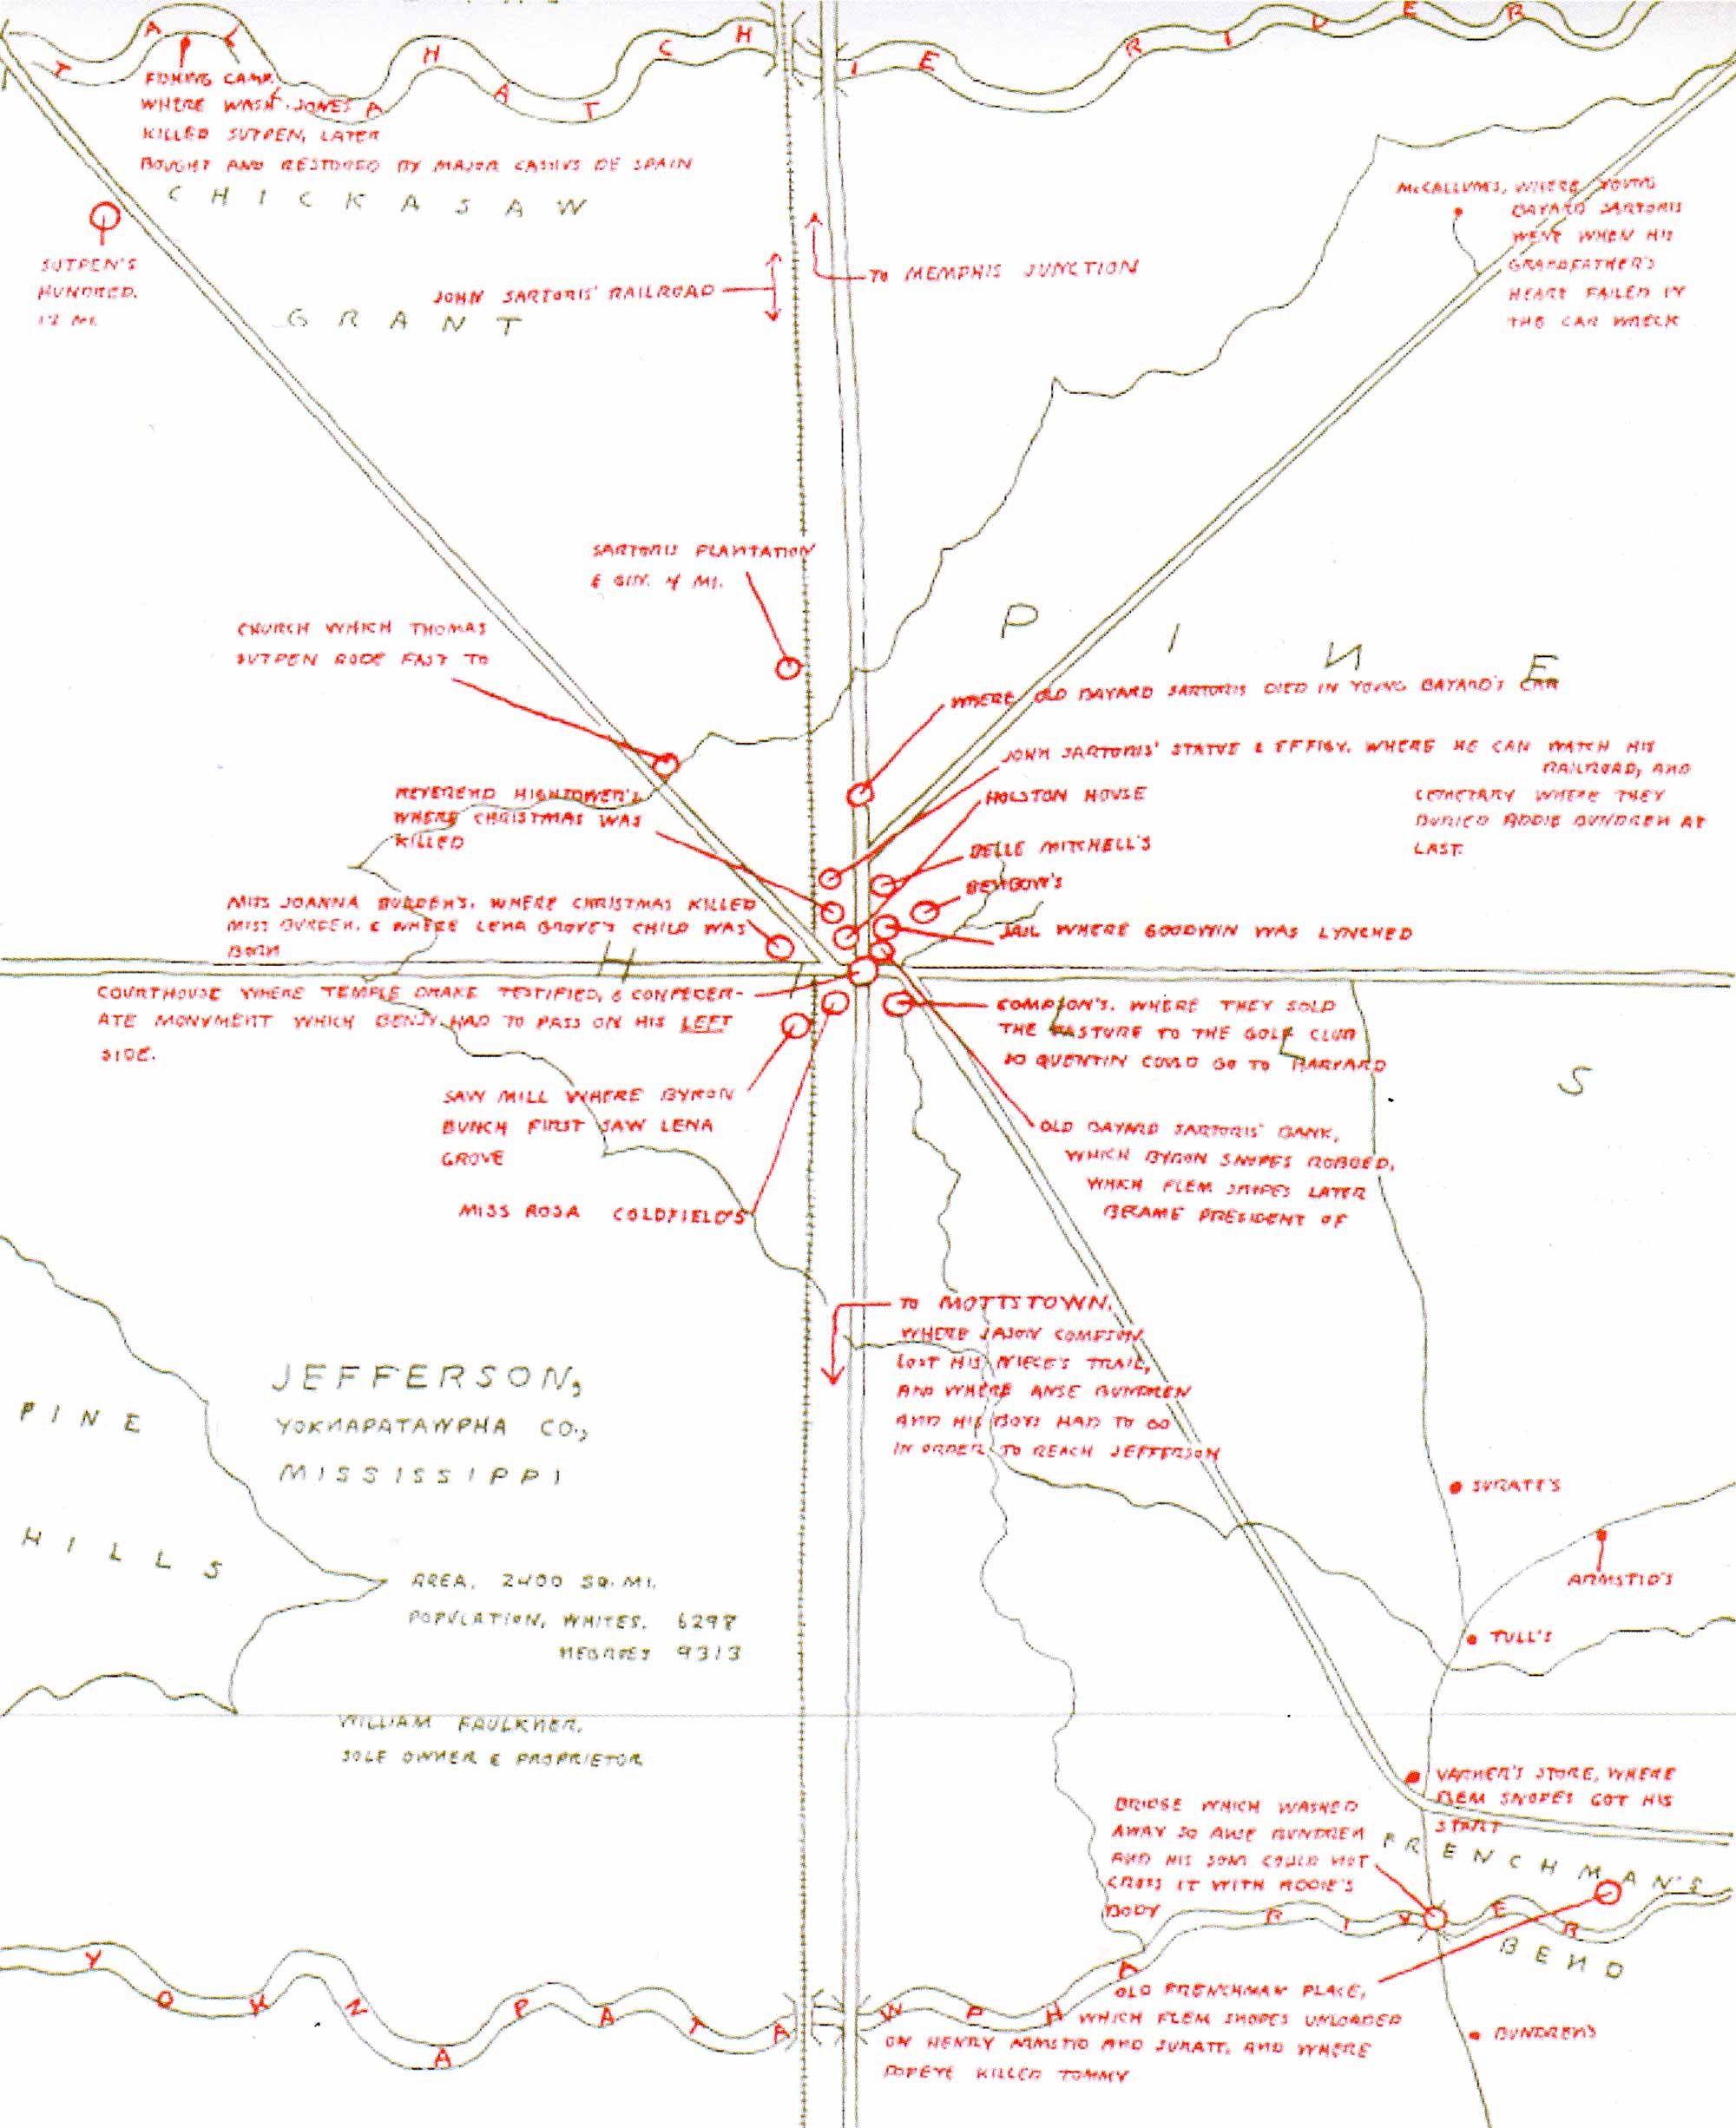 TALLAHATCHIE RIVER
FISHING CAMP.
WHERE WASH JONES
KILLED SUTPEN, LATER
BOUGHT AND RESTORED BY MAJOR CASSIUS DE SPAIN
CHICKASAW
GRANT
SUTPEN'S
HUNDRED.
12 MI.
JOHN SARTORIS' RAILROAD
TO MEMPHIS JUNCTION
McCALLUM'S, WHERE YOUNG
BAYARD SARTORIS
WENT WHEN HIS
GRANDFATHER'S
HEART FAILED IN
THE CAR WRECK
SARTORIS PLANTATION
& GIN. 4 MI.
CHURCH WHICH THOMAS
SUTPEN RODE FAST TO
PINE
HILLS
WHERE OLD BAYARD SARTORIS DIED IN YOUNG BAYARD'S CAR
JOHN SARTORIS' STATUE & EFFIGY. WHERE HE CAN WATCH HIS
RAILROAD, AND
CEMETARY WHERE THEY
BURIED ADDIE BUNDREN AT
LAST.
HOLSTON HOUSE
BELLE MITCHELL'S
BENBOW'S
JAIL WHERE GOODWIN WAS LYNCHED
REVEREND HIGHTOWER'S,
WHERE CHRISTMAS WAS
KILLED
MISS JOANNA BURDEN'S, WHERE CHRISTMAS KILLED
MISS BURDEN, & WHERE LENA GROVE'S CHILD WAS
BORN
COURTHOUSE WHERE TEMPLE DRAKE TESTIFIED, & CONFEDER-
ATE MONUMENT WHICH BENJY HAD TO PASS ON HIS LEFT
SIDE.
COMPSON'S. WHERE THEY SOLD
THE PASTURE TO THE GOLF CLUB
SO QUENTIN COULD GO TO HARVARD
SAW MILL WHERE BYRON
BUNCH FIRST SAW LENA
GROVE
MISS ROSA COLDFIELD'S
OLD BAYARD SARTORIS' BANK,
WHICH BYRON SNOPES ROBBED,
WHICH FLEM SNOPES LATER
BECAME PRESIDENT OF
TO MOTTSTOWN,
WHERE JASON COMPSON
LOST HIS NIECE'S TRAIL,
AND WHERE ANSE BUNDREN
AND HIS BOYS HAD TO GO
IN ORDER TO REACH JEFFERSON
JEFFERSON,
YOKNAPATAWPHA CO.,
MISSISSIPPI
PINE
HILLS
AREA, 2400 SQ. MI.
POPULATION, WHITES, 6298
NEGROES 9313
WILLIAM FAULKNER,
SOLE OWNER & PROPRIETOR
SURATT'S
ARMSTID'S
TULL'S
VARNER'S STORE, WHERE
FLEM SNOPES GOT HIS
START
BRIDGE WHICH WASHED
AWAY SO ANSE BUNDREN
AND HIS SONS COULD NOT
CROSS IT WITH ADDIE'S
BODY
FRENCHMAN'S
BEND
YOKNAPATAWPHA RIVER
OLD FRENCHMAN PLACE,
WHICH FLEM SNOPES UNLOADED
ON HENRY ARMSTID AND SURATT, AND WHERE
POPEYE KILLED TOMMY
BUNDREN'S